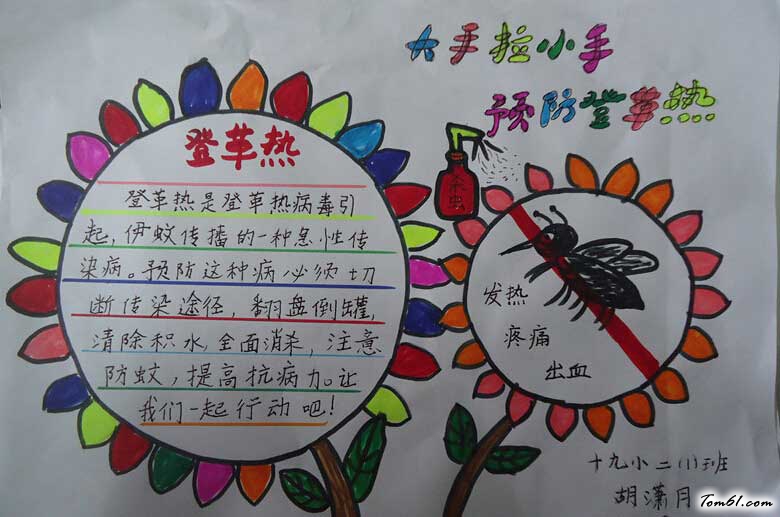 大手拉小手
预防登革热
登革热
登革热是登革热病毒引
起，伊蚊传播的一种急性传
染病。预防这种病必须切
断传染途径，翻盘倒罐，
清除积水，全面消杀，注意
防蚊，提高抗病力。让
我们一起行动吧！
杀虫
发热
疼痛
出血
十九小二(1)班
胡潇月
Tom61.com